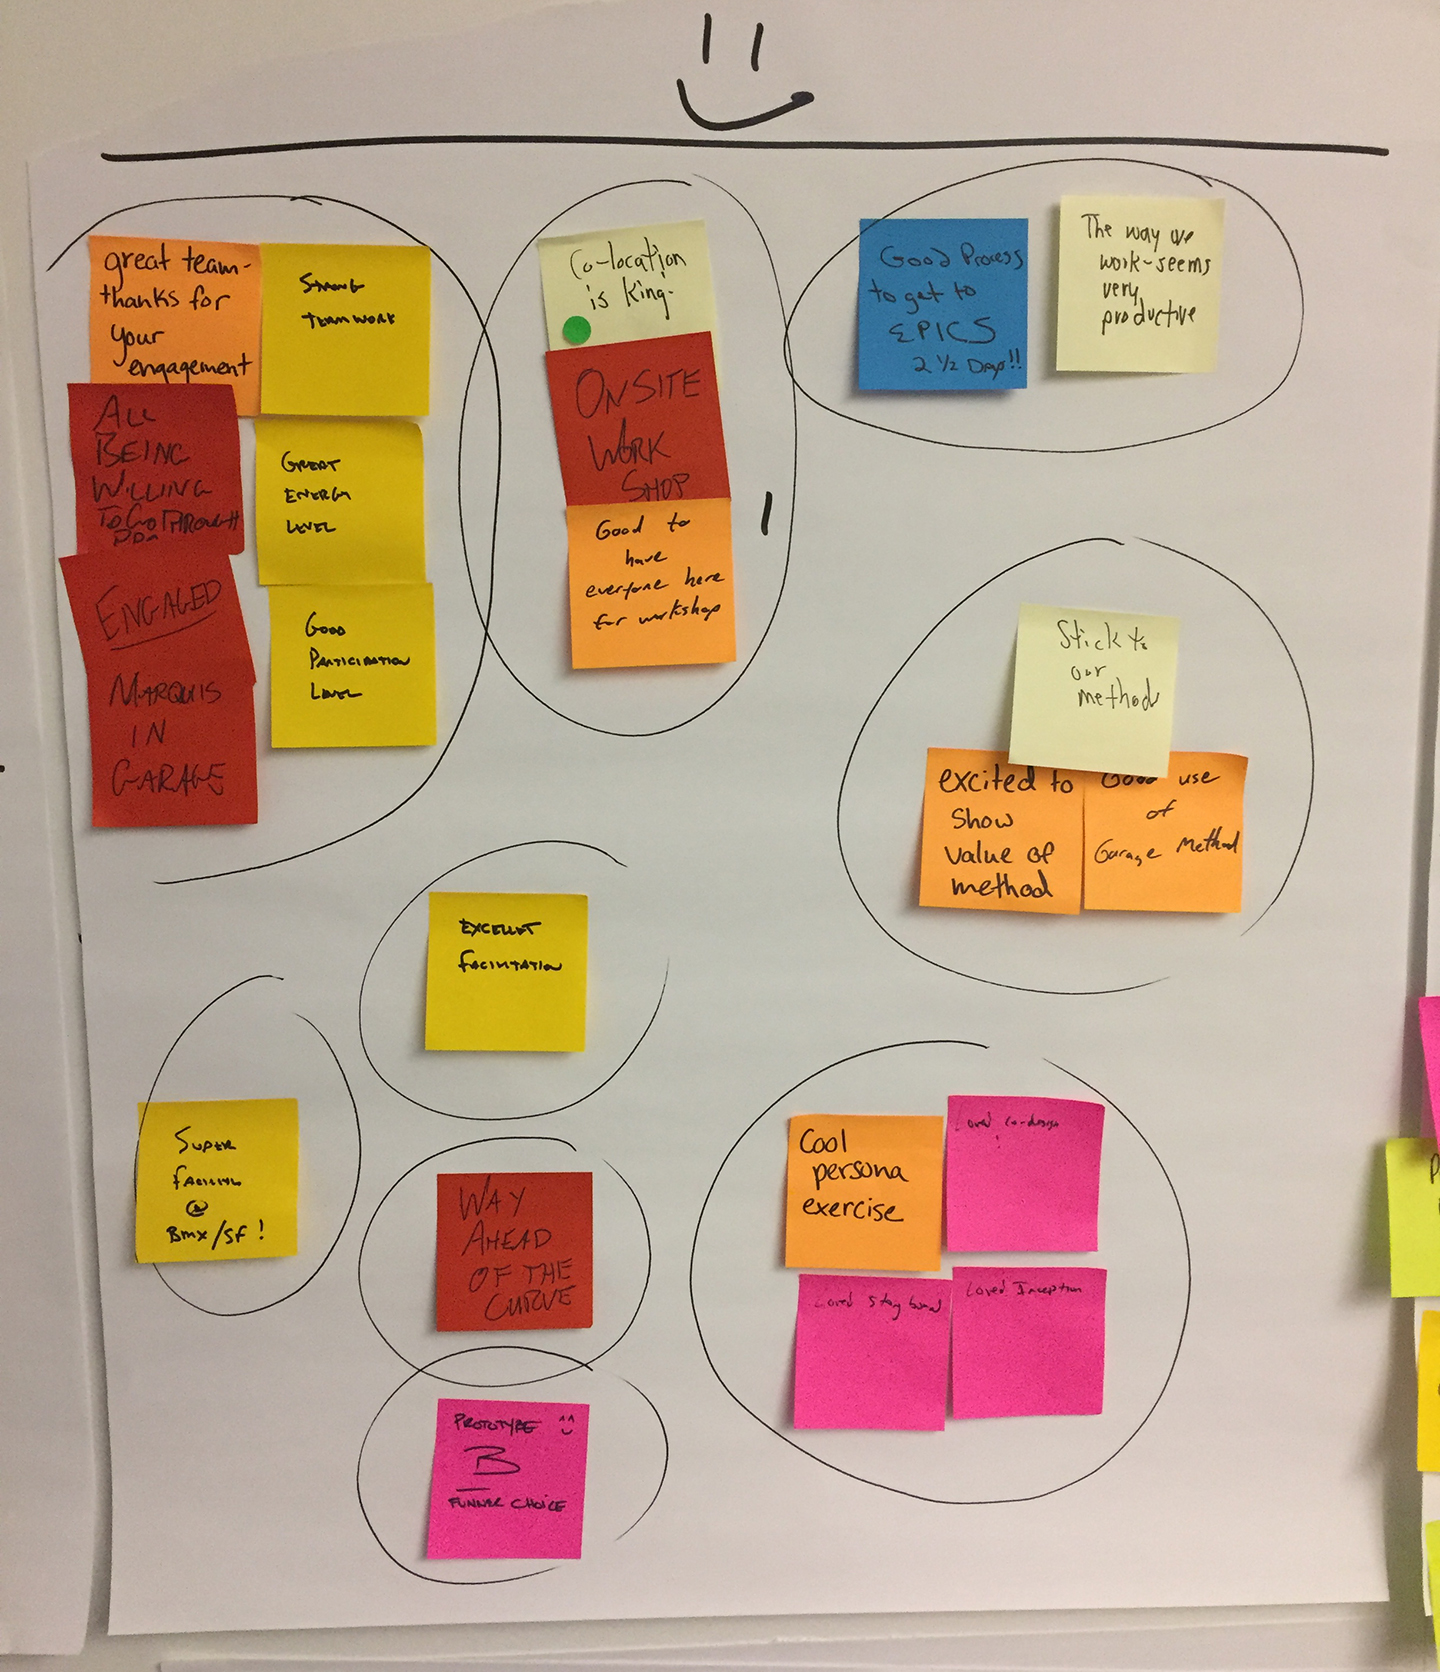 great team-
thanks for
your
engagement
STRONG
TEAMWORK
ALL
BEING
WILLING
TO GO THROUGH
GREAT
ENERGY
LEVEL
ENGAGED
MARQUIS
IN
GARAGE
GOOD
PARTICIPATION
LEVEL
Co-location
is King.
ONSITE
WORK
SHOP
Good to
have
everyone here
for workshop
Good Process
to get to
EPICS
2 1/2 Days!!
The way we
work-seems
very
productive
Stick to
our
method
excited to
show
value of
method
Good use
of
Garage Method
EXCELLET
FACILITATION
SUPER
@
BMX/SF!
WAY
AHEAD
OF THE
CURVE
PROTOTYPE
B
FUNNER CHOICE
Cool
persona
exercise
Loved co-design
!
Loved
Loved Inception